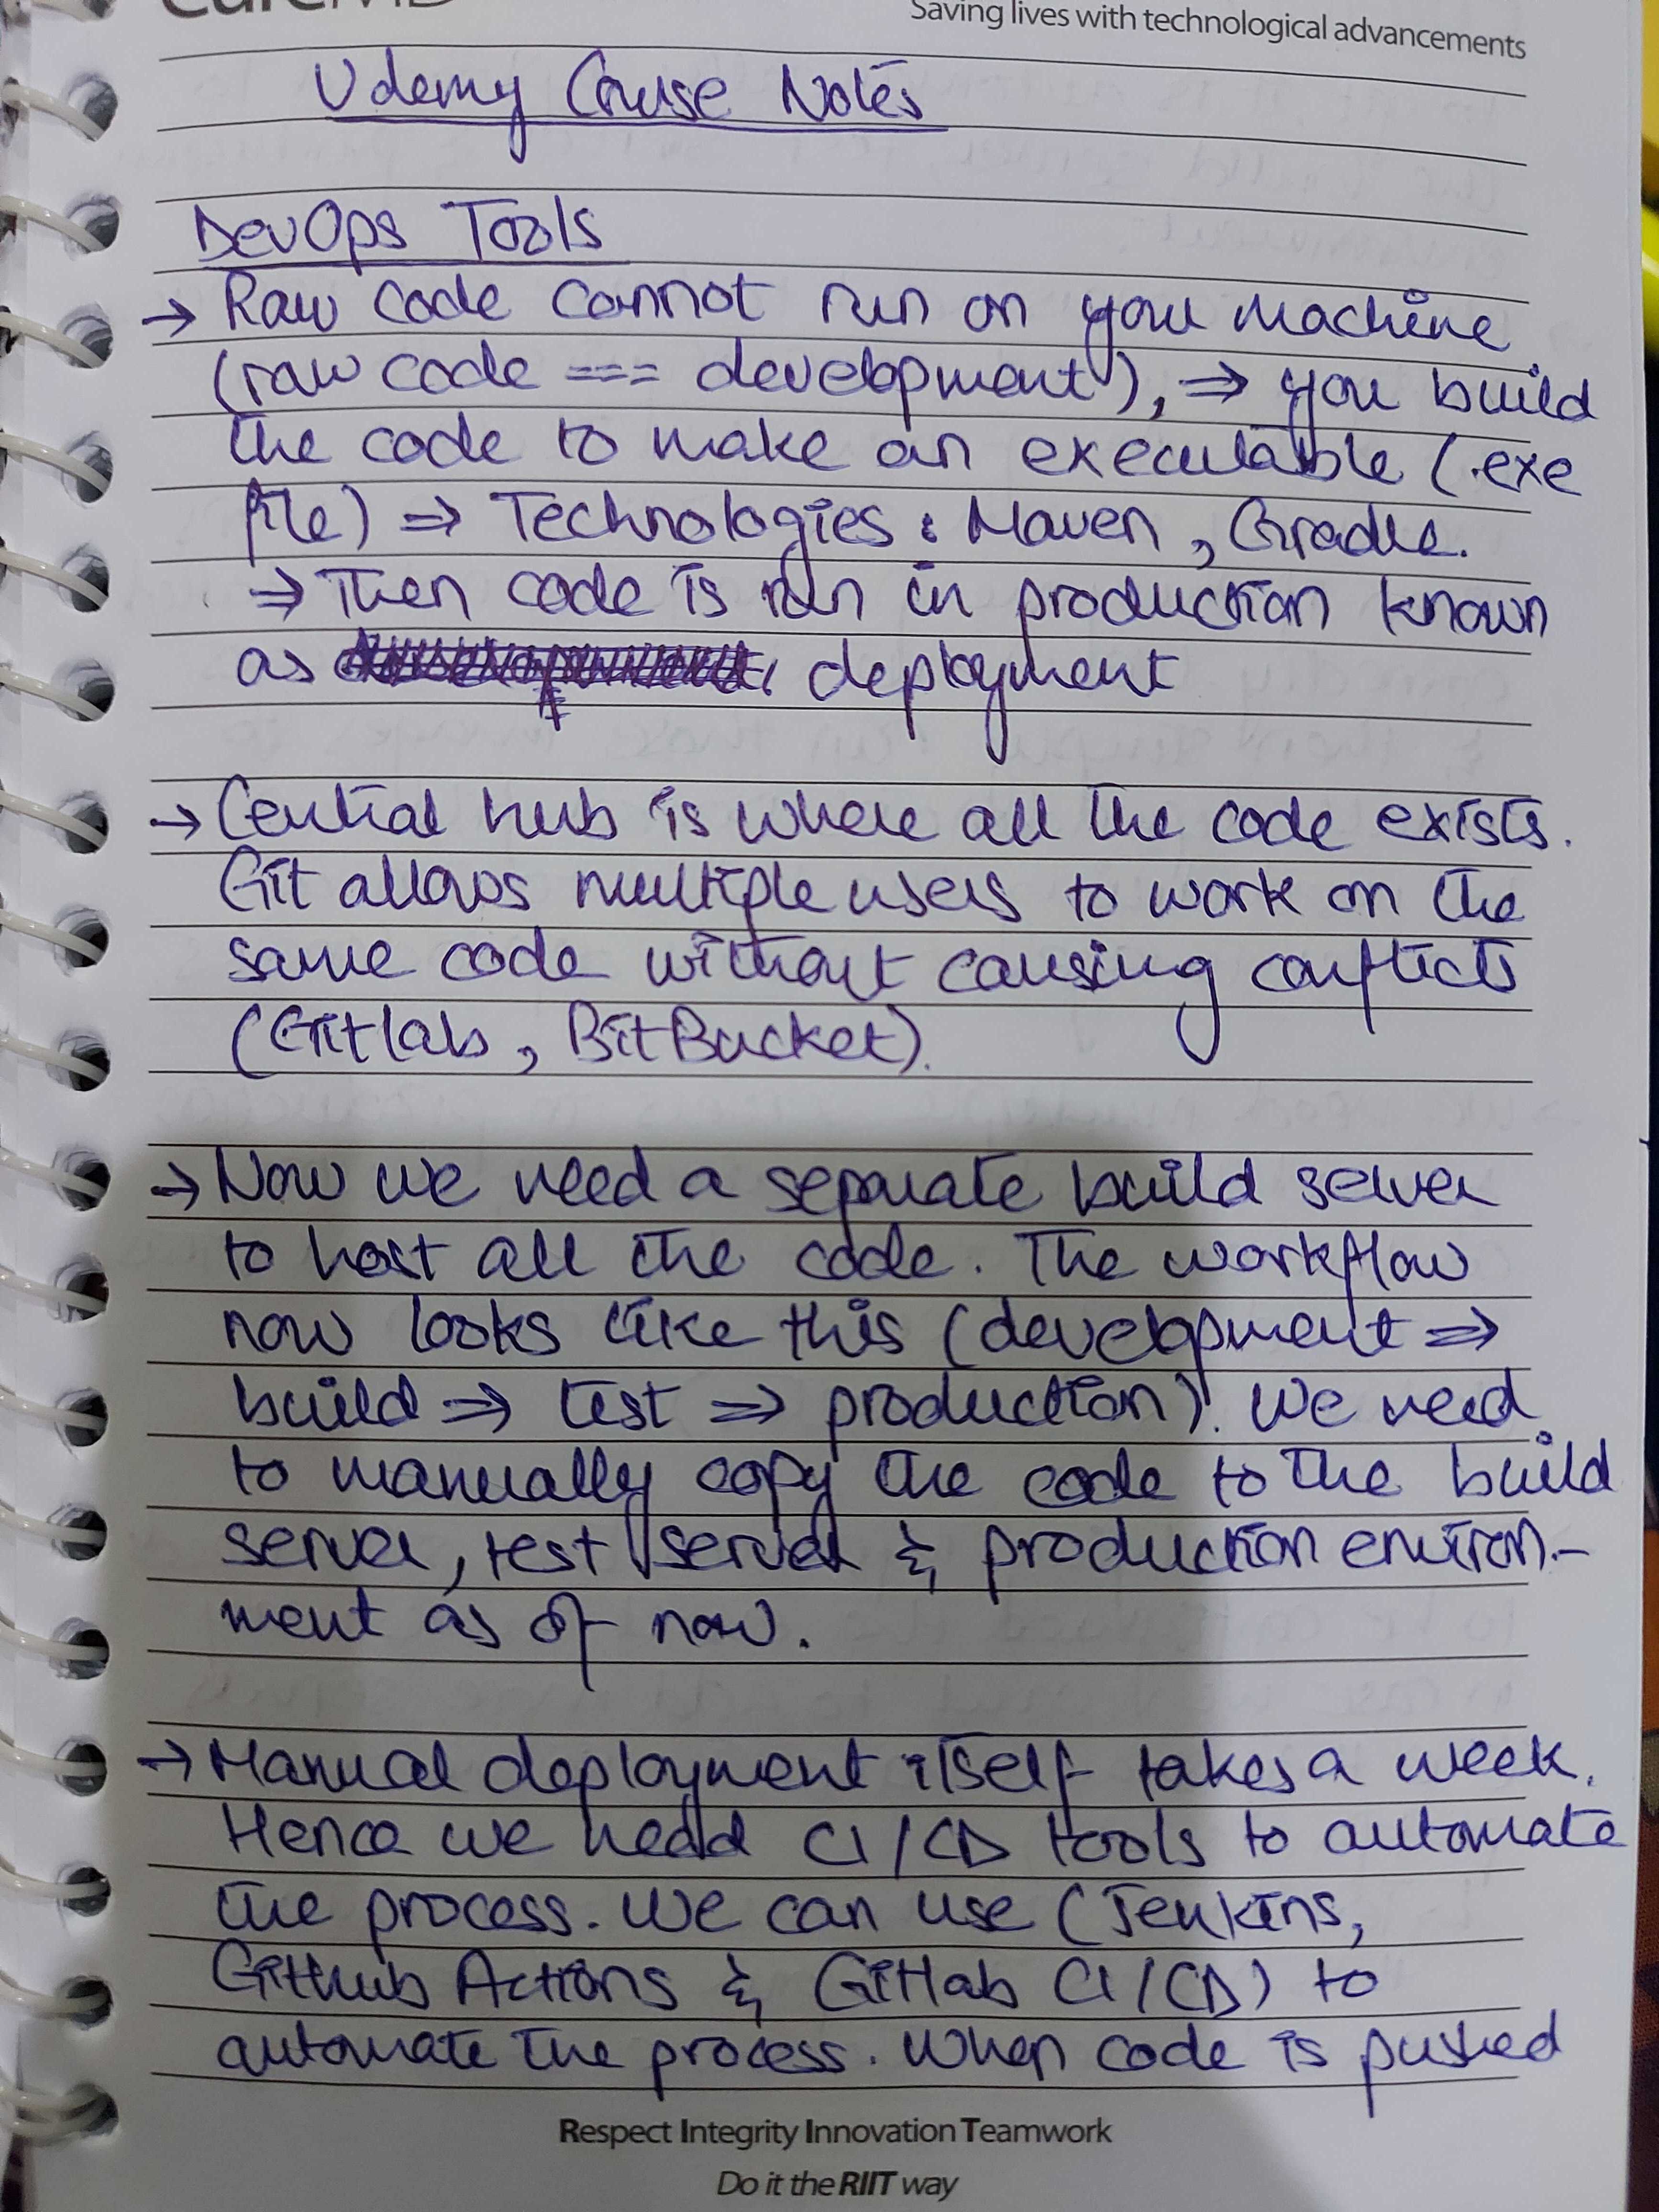 Saving lives with technological advancements
Udemy Course Notes
DevOps Tools
→ Raw code cannot run on your machine
(raw code === development), ⇒ you build
the code to make an executable (.exe
file) ⇒ Technologies : Maven , Gradle.
⇒ Then code is run in production known
as deployment
→ Central hub is where all the code exists.
Git allows multiple users to work on the
same code without causing conflicts
(Gitlab , BitBucket).
→ Now we need a separate build server
to host all the code. The workflow
now looks like this (development ⇒
build ⇒ test ⇒ production). We need
to manually copy the code to the build
server, test server & production environ-
ment as of now.
→ Manual deployment itself takes a week.
Hence we need CI/CD tools to automate
the process. We can use (Jenkins,
GitHub Actions & Gitlab CI/CD) to
automate the process. When code is pushed
Respect Integrity Innovation Teamwork
Do it the RIIT way